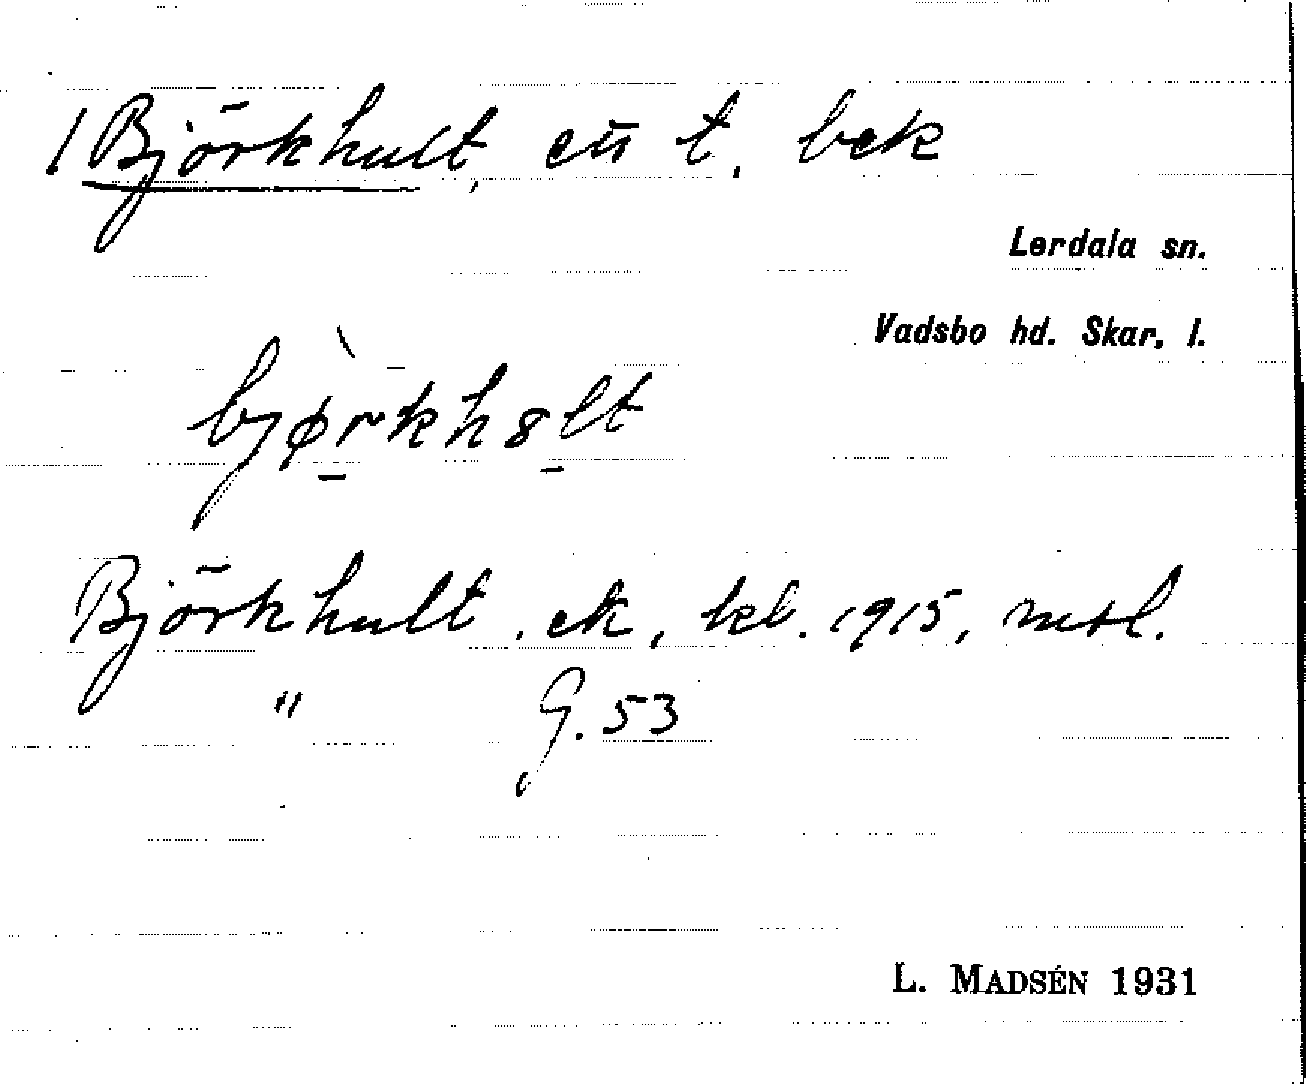 1 Björkhult, en t. bek
Lerdala sn.
Vadsbo hd. Skar. l.
bjørkh8lt
Björkhult, ek, kb. 1915, mtl.
" G. 53
L. MADSÉN 1931